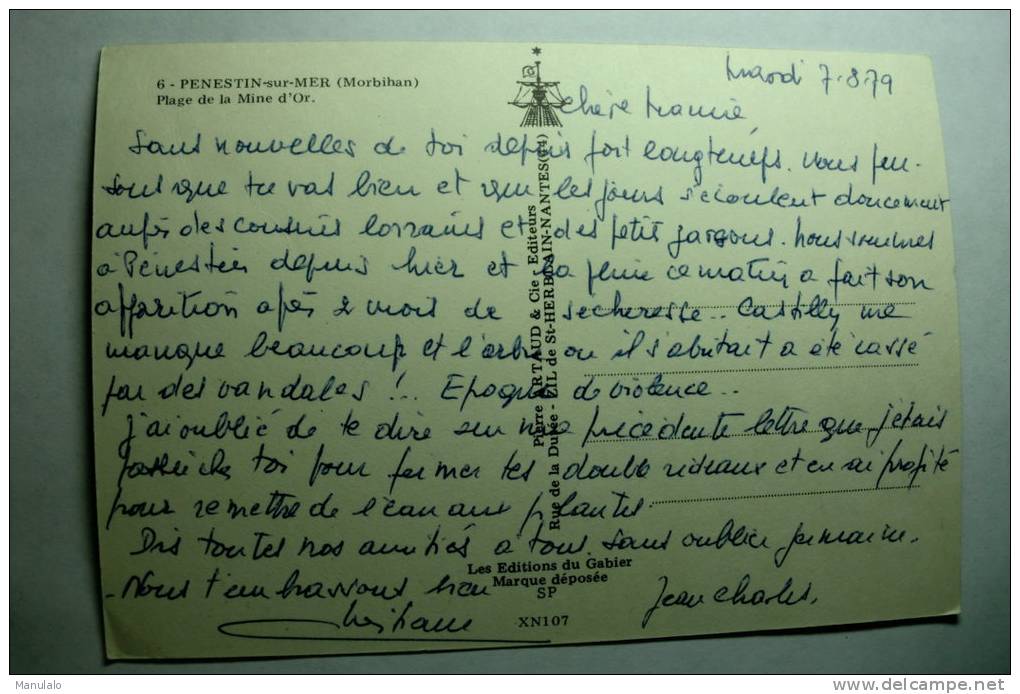 6 - PENESTIN-sur-MER (Morbihan)
Plage de la Mine d'Or.
mardi 7.8.79
Chère Mamie
Sans nouvelles de toi depuis fort longtemps. nous pen-
sons que tu vas bien et que les jours s'écoulent doucement
auprès des cousins lorrains et des petits garçons. Nous sommes
à Pénestin depuis hier et la pluie ce matin a fait son
apparition après 2 mois de sécheresse.. Castilly me
manque beaucoup et l'arbre ou il s'abritait a été cassé
par des vandales !.. Epoque de violence..
J'ai oublié de te dire sur ma précédente lettre que j'étais
passée chez toi pour fermer tes double rideaux et en ai profité
pour remettre de l'eau aux plantes.
Dis toutes nos amitiés à tous. sans oublier Germaine.
- Nous t'embrassons bien
Jean Charles.
Pierre ARTAUD & Cie - Editeurs
Rue de la Durée - ZIL de St-HERBLAIN-NANTES (44)
Les Editions du Gabier
Marque déposée
SP
XN107
Manulalo
www.delcampe.net